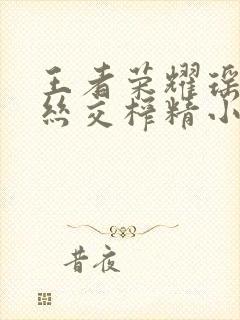 王者荣耀瑶
丝交榨精小
昔夜